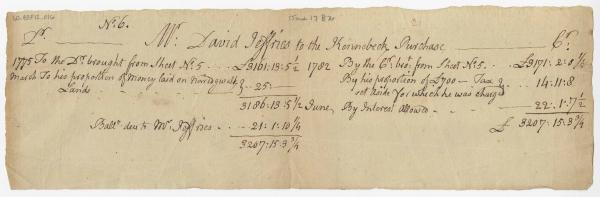 No. 6.
Dr. Mr. David Jeffries to the Kennebeck Purchase Cr.
1775 To the Dr. brought from Sheet No. 5 £3161:13:5 1/2
March To his proportion of money laid on
Lands 25:
3186:13:5 1/2
Ballce. due to Mr. Jeffries 21:1:10 1/4
3207:15:3 3/4
1782 By the Cr. bro: from Sheet No. 5 £3171:2:0 1/2
By his proportion of £700 Tax
set aside for which he was charged 14:11:8
June, By Interest allowed 22:1:7 1/2
£ 3207:15:3 3/4